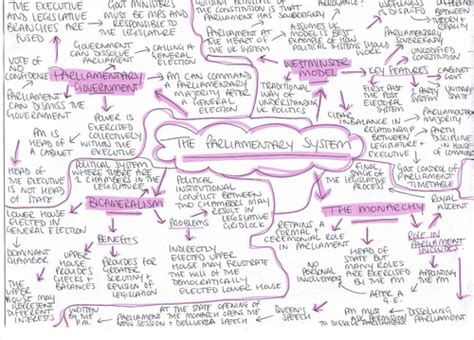 THE EXECUTIVE
AND LEGISLATIVE
BRANCHES ARE
FUSED
GOVT
MINISTERS
MUST BE MPS AND
RESPONSIBLE TO
THE LEGISLATURE
GOVERNMENT
CAN DISSOLVE
PARLIAMENT
CALLING A
GENERAL
ELECTION
VOTE OF
NO
CONFIDENCE
PARLIAMENT
CAN DISMISS THE
GOVERNMENT
PARLIAMENTARY
GOVERNMENT
PM CAN COMMAND
A PARLIAMENTARY
MAJORITY AFTER
A GENERAL
ELECTION
POWER IS
EXERCISED
COLLECTIVELY
WITHIN THE
EXECUTIVE
PM IS
HEAD OF
A CABINET
HEAD OF
THE
EXECUTIVE
IS NOT HEAD
OF STATE
THE PARLIAMENTARY SYSTEM
THE CONSTITUTION IS THAT
PARLIAMENT HAS SOVEREIGNTY
PARLIAMENT IS
THE HEART OF
THE UK SYSTEM
WESTMINSTER
MODEL
TRADITIONAL
WAY OF
UNDERSTANDING
UK POLITICS
ASSUMES W.
MODEL IS BEST
EXAMPLE OF HOW
POLITICAL SYSTEMS
SHOULD
KEY FEATURES
UNCODIFIED
CONSTITUTION
CABINET
UNITARY
STATE
FIRST PAST
THE POST
ELECTORAL
SYSTEM
CLEAR
IMBALANCE IN
RELATIONSHIP
BETWEEN
LEGISLATURE +
EXECUTIVE
PARTY
DISCIPLINE
IN HOUSE
OF COMMONS
GOVT CONTROL OF
PARLIAMENTARY
TIMETABLE
POLITICAL SYSTEM
WHERE THERE ARE
2 CHAMBERS IN THE
LEGISLATURE
BICAMERALISM
LOWER HOUSE
ELECTED IN
GENERAL ELECTION
DOMINANT
CHAMBER
THE
UPPER
HOUSE MAY
REPRESENT
DIFFERENT
INTERESTS
BENEFITS
UPPER
HOUSE
PROVIDES
CHECKS +
BALANCES
PROVIDES FOR
GREATER
SCRUTINY +
REVISION OF
LEGISLATION
PROBLEMS
POLITICAL
INSTITUTIONAL
CONFLICT BETWEEN
TWO CHAMBERS MAY
RESULT IN
LEGISLATIVE
GRIDLOCK
INDIRECTLY
ELECTED UPPER
HOUSE MAY FRUSTRATE
THE WILL OF THE
DEMOCRATICALLY
ELECTED LOWER HOUSE
THE MONARCHY
FINAL
STAGE OF
THE LEGISLATIVE
PROCESS
ROYAL
ASSENT
RETAINS A
FORMAL +
CEREMONIAL ROLE
IN PARLIAMENT
ROLE IN
PARLIAMENT
INCLUDES
HEAD OF
STATE
BUT MANY
ROLES ARE
EXERCISED BY
THE PM
NO
PERSONAL
INVOLVEMENT
THE PM
AFTER A
G.E.
DISSOLVING
PARLIAMENT
PM MUST
ASK PERMISSION
TO DISSOLVE PARLIAMENT
QUEEN'S
SPEECH
AT THE STATE OPENING OF
PARLIAMENT THE MONARCH OPENS THE
NEW SESSION + DELIVERS A SPEECH
WRITTEN
BY THE
P.M.